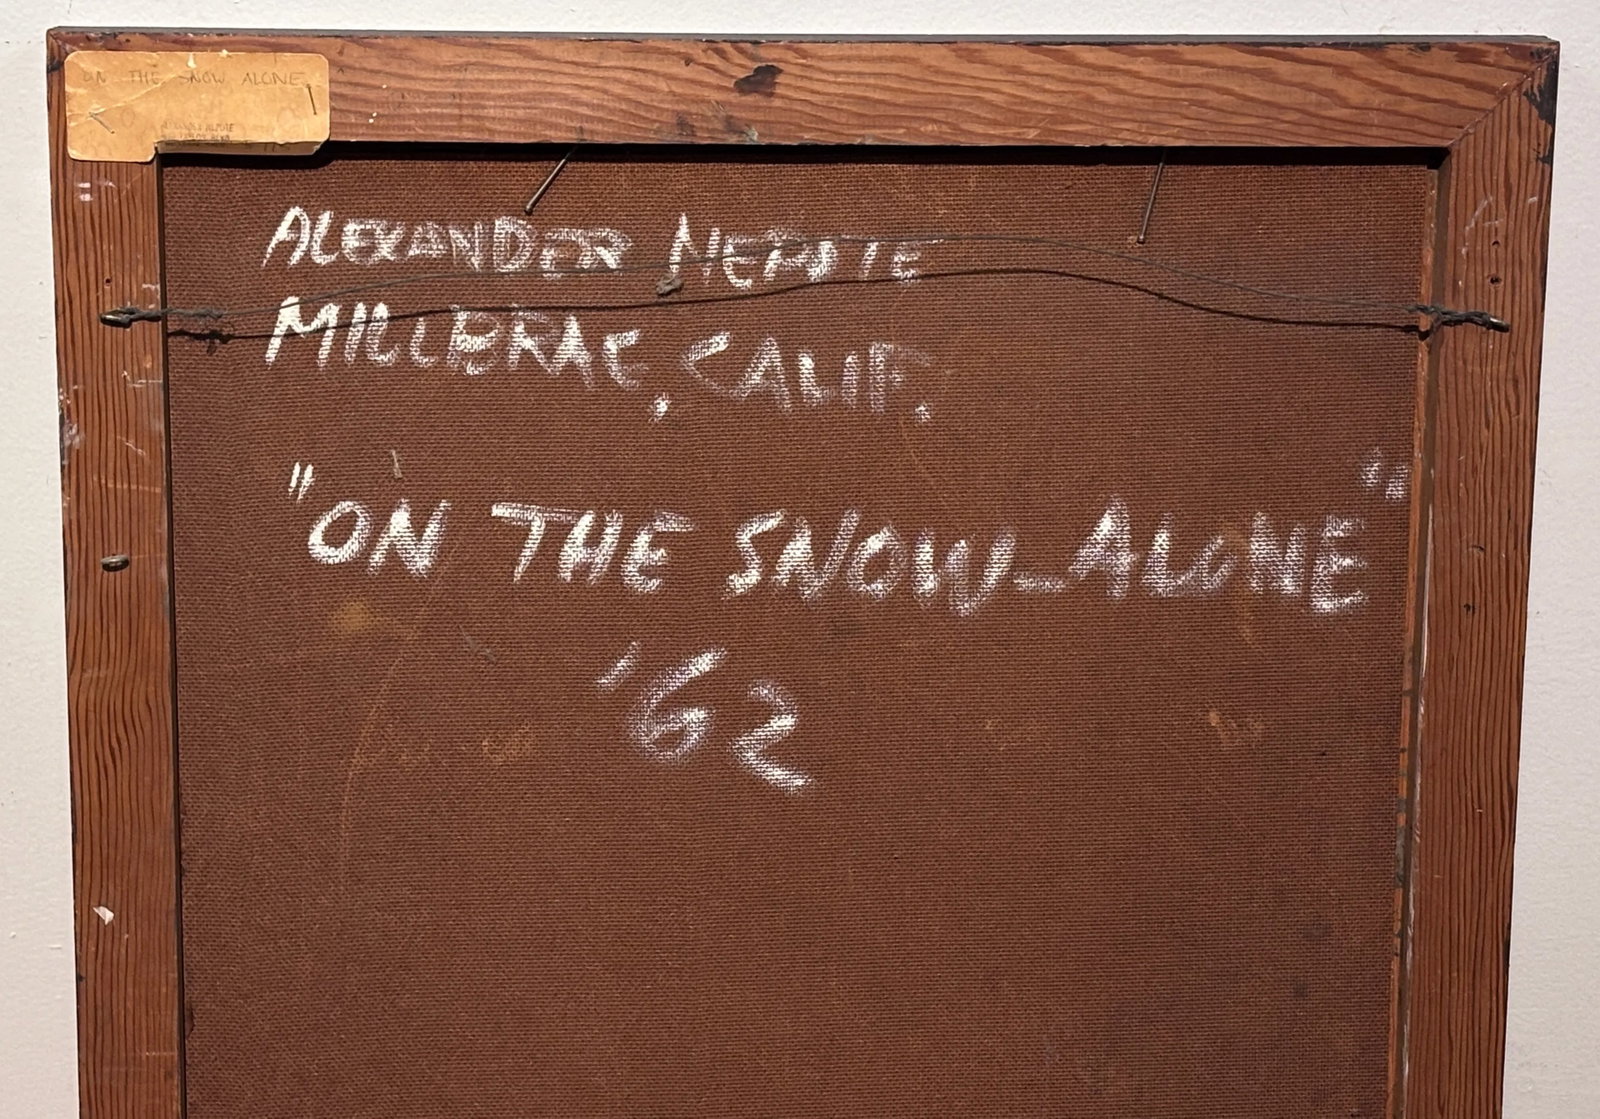 ON THE SNOW ALONE
ALEXANDER NEPOTE
ALEXANDER NEPOTE
MILLBRAE, CALIF.
"ON THE SNOW-ALONE"
'62